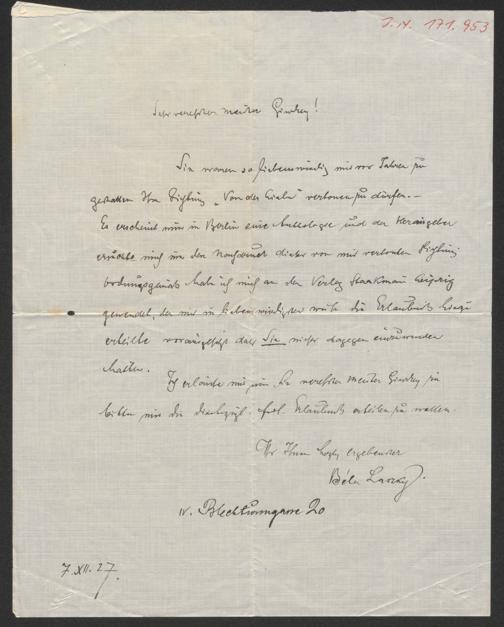 J.N. 171.953
Sehr verehrter Meister Ginzkey!
Sie waren so liebenswürdig mir vor Jahren zu
gestatten Ihre Dichtung „Von der Liebe" vertonen zu dürfen.–
Es erscheint nun in Berlin eine Anthologie und der Herausgeber
ersuchte mich um den Nachdruck dieser von mir vertonten Dichtung
ordnungsgemäß habe ich mich an den Verlag Staakmann Leipzig
gewendet, der mir in liebenswürdigster weise die Erlaubnis hiezu
erteilte vorausgesetzt dass Sie nichts dagegen einzuwenden
hätten.
Ich erlaube mir nun Sie verehrter Meister Ginzkey zu
bitten mir die diesbezügl. Erlaubnis erteilen zu wollen.
Ihr Ihnen ergebenster
Béla Laszky.
IV. Blechturmgasse 20
7.XII.27.